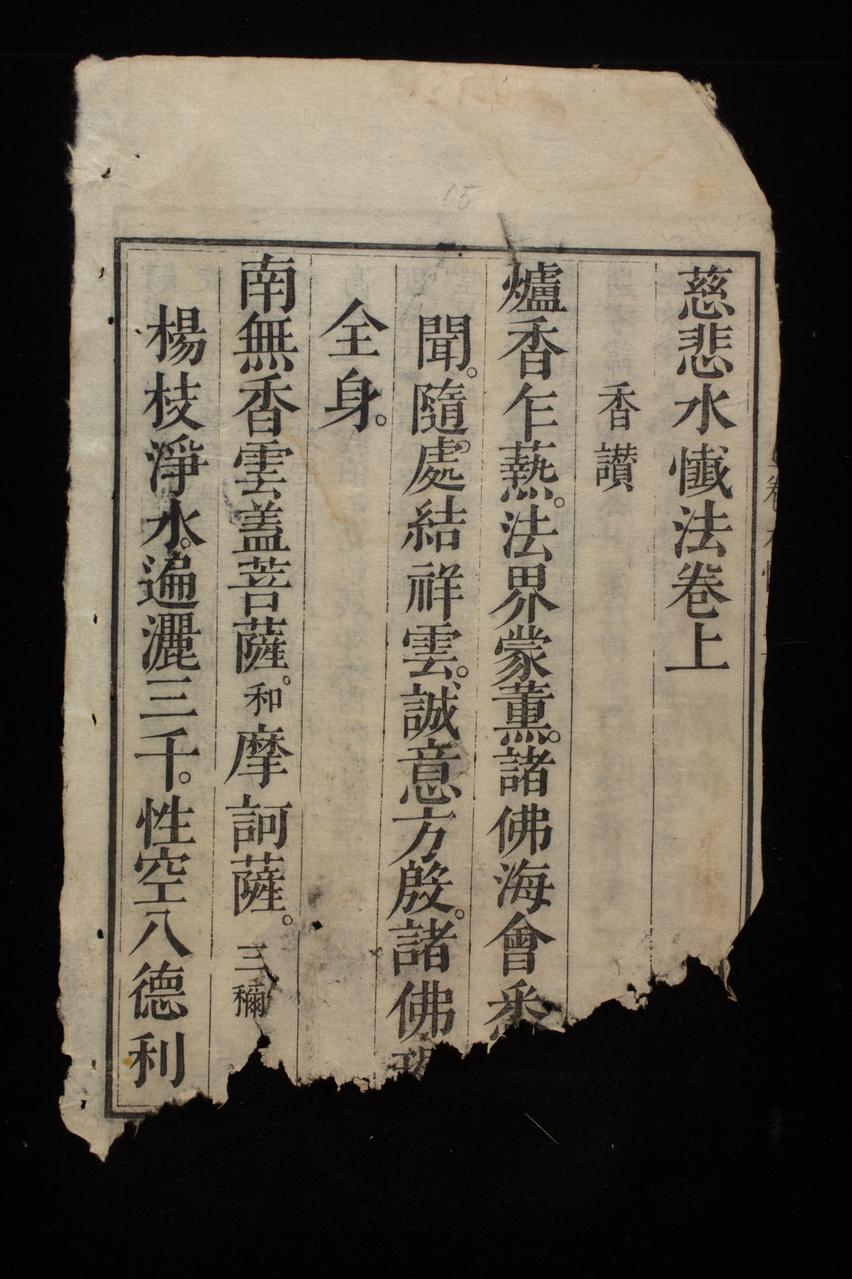 慈悲水懺法卷上
香讃
爐香乍爇。法界蒙薰。諸佛海會悉
聞。隨處結祥雲。誠意方殷。諸佛現
全身。
南無香雲盖菩薩。和摩訶薩。三稱
楊枝淨水。遍灑三千。性空八德利
05